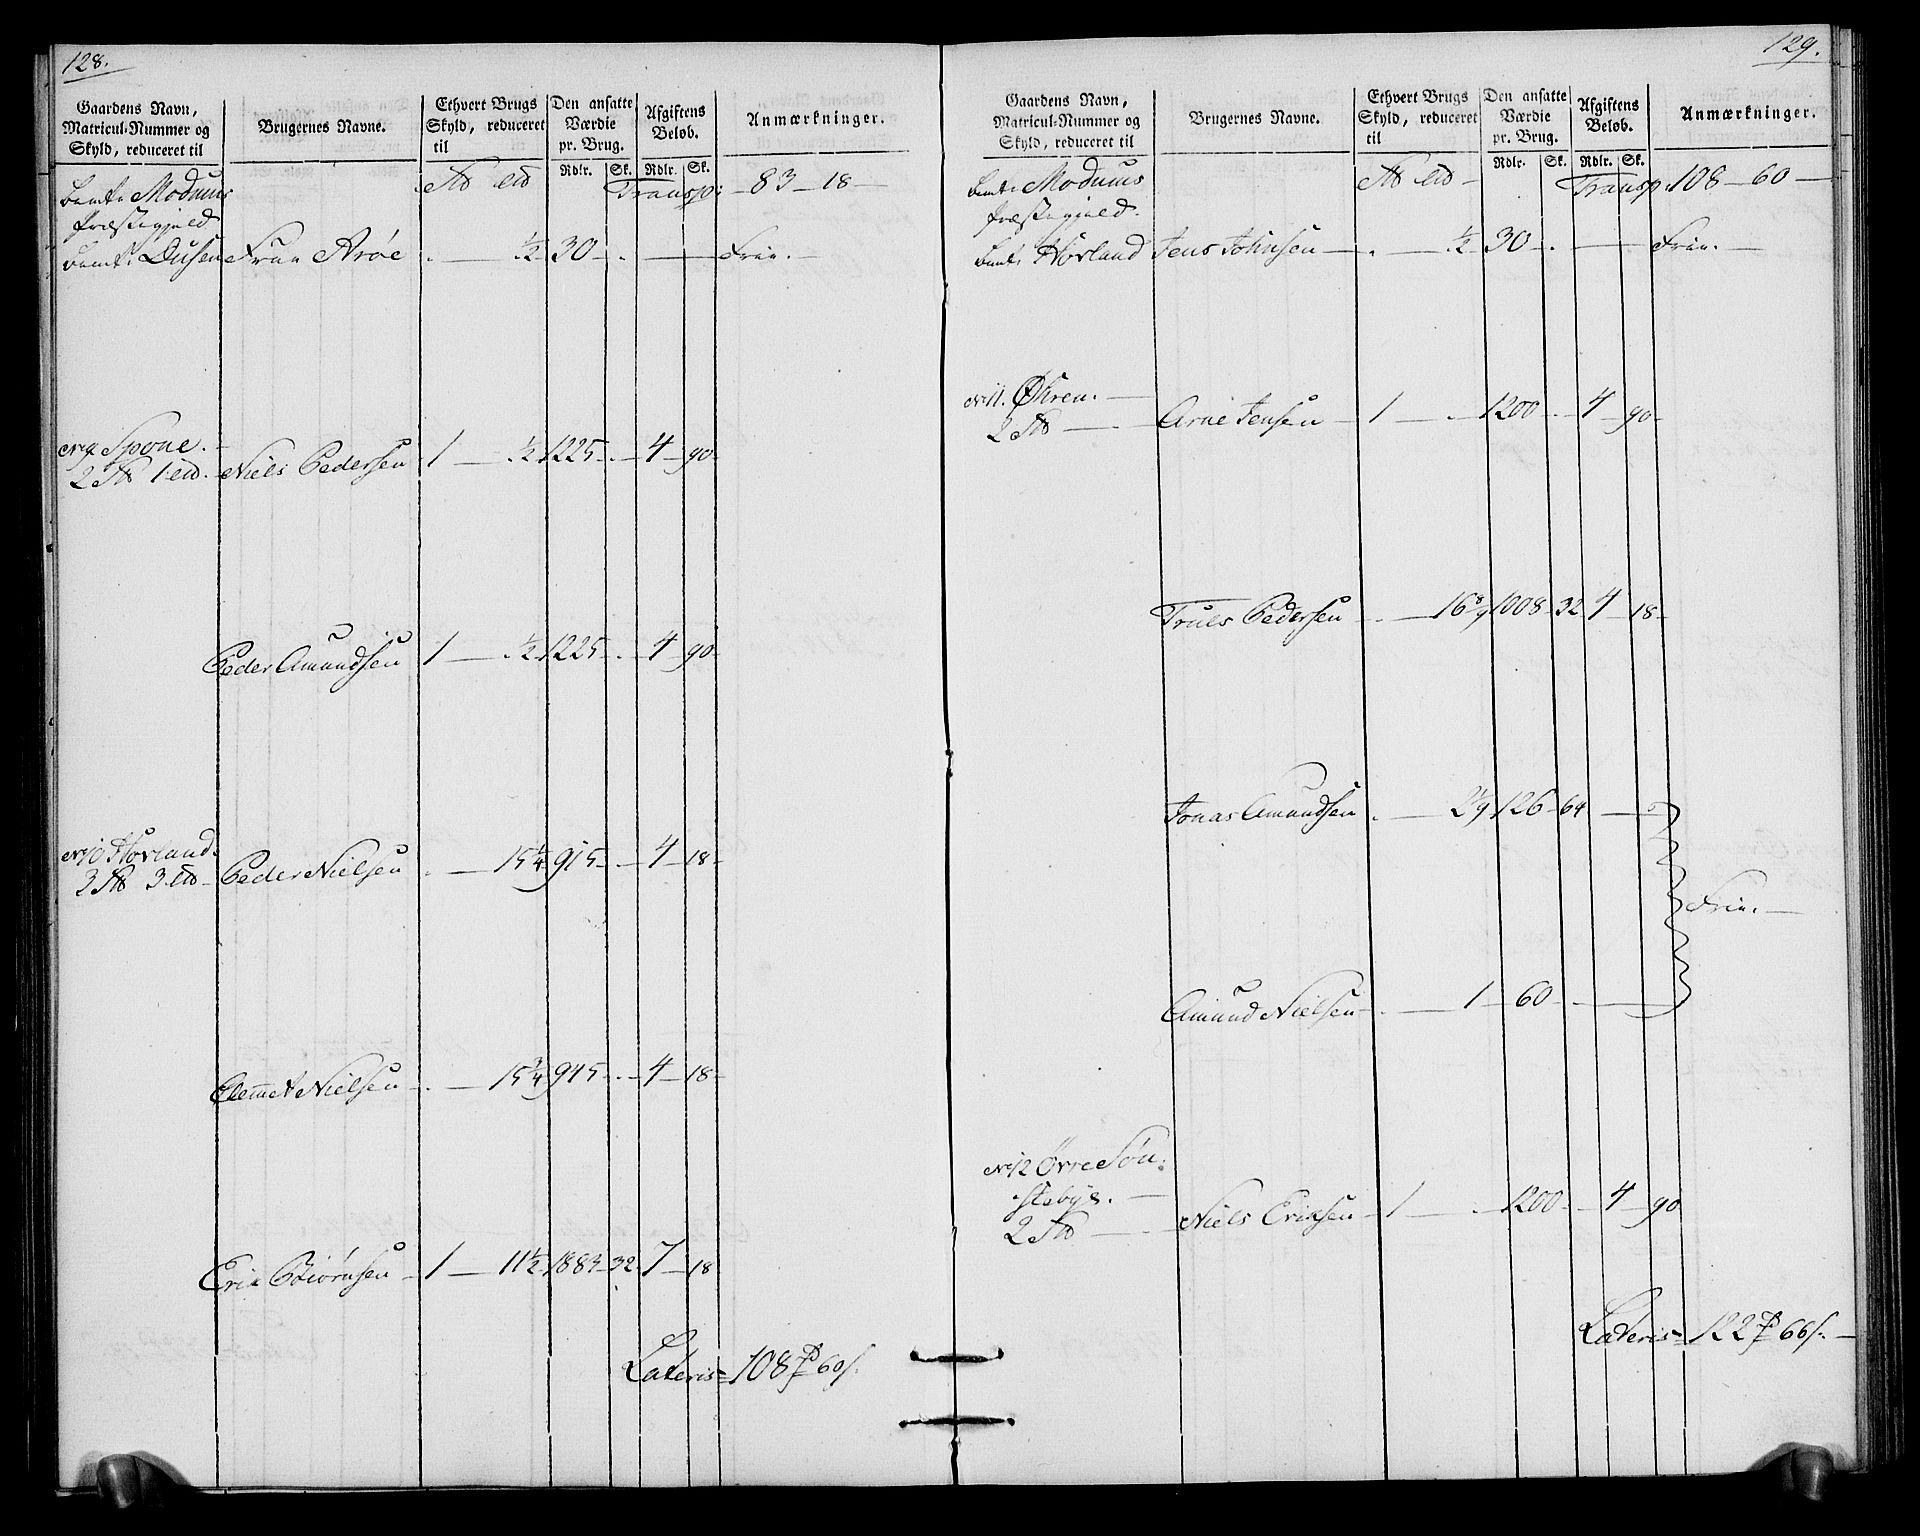 128.
Gaardens Navn, Matricul-Nummer og Skyld, reduceret til | Brugernes Navne. | Ethvert Brugs Skyld, reduceret til | Den ansatte Værdie pr. Brug. Rdlr. Sk. | Afgiftens Beløb. Rdlr. Sk. | Anmærkninger.
bemte Modums Transp: 83 - 18
Præstegjeld
bemte Dusen Frue Arøe . ½ 30 . Frie.
No 9 Spone.
2 1 Niels Pedersen 1 ½ 1225 . 4 90
Peder Amundsen 1 . ½ 1225 . 4 90
No 10 Hovland.
3 3 Peder Nielsen . 15¼ 915 . 4 18
Clemmet Nielsen . 15¾ 945 . 4 18
Erik Biørnsen 1 11½ 1883 32 7 18
Lateris 108 60
129.
Gaardens Navn, Matricul-Nummer og Skyld, reduceret til | Brugernes Navne. | Ethvert Brugs Skyld, reduceret til | Den ansatte Værdie pr. Brug. Rdlr. Sk. | Afgiftens Beløb. Rdlr. Sk. | Anmærkninger.
bemte Modums Transp. 108 - 60
Præstegjeld.
bemte Hovland Jens Johnsen . ½ 30 . Frie.
No 11. Øhren.
2 Arne Jensen 1 . 1200 . 4 90
Truls Pedersen . 16 8/9 1008 32 4 18
Jonas Amundsen . 2 1/9 126 64
Frie.
Amund Nielsen . 1 60
No 12 Øvre Søn
stebye.
2 Niels Eriksen 1 . 1200 4 90
Lateris 122 66